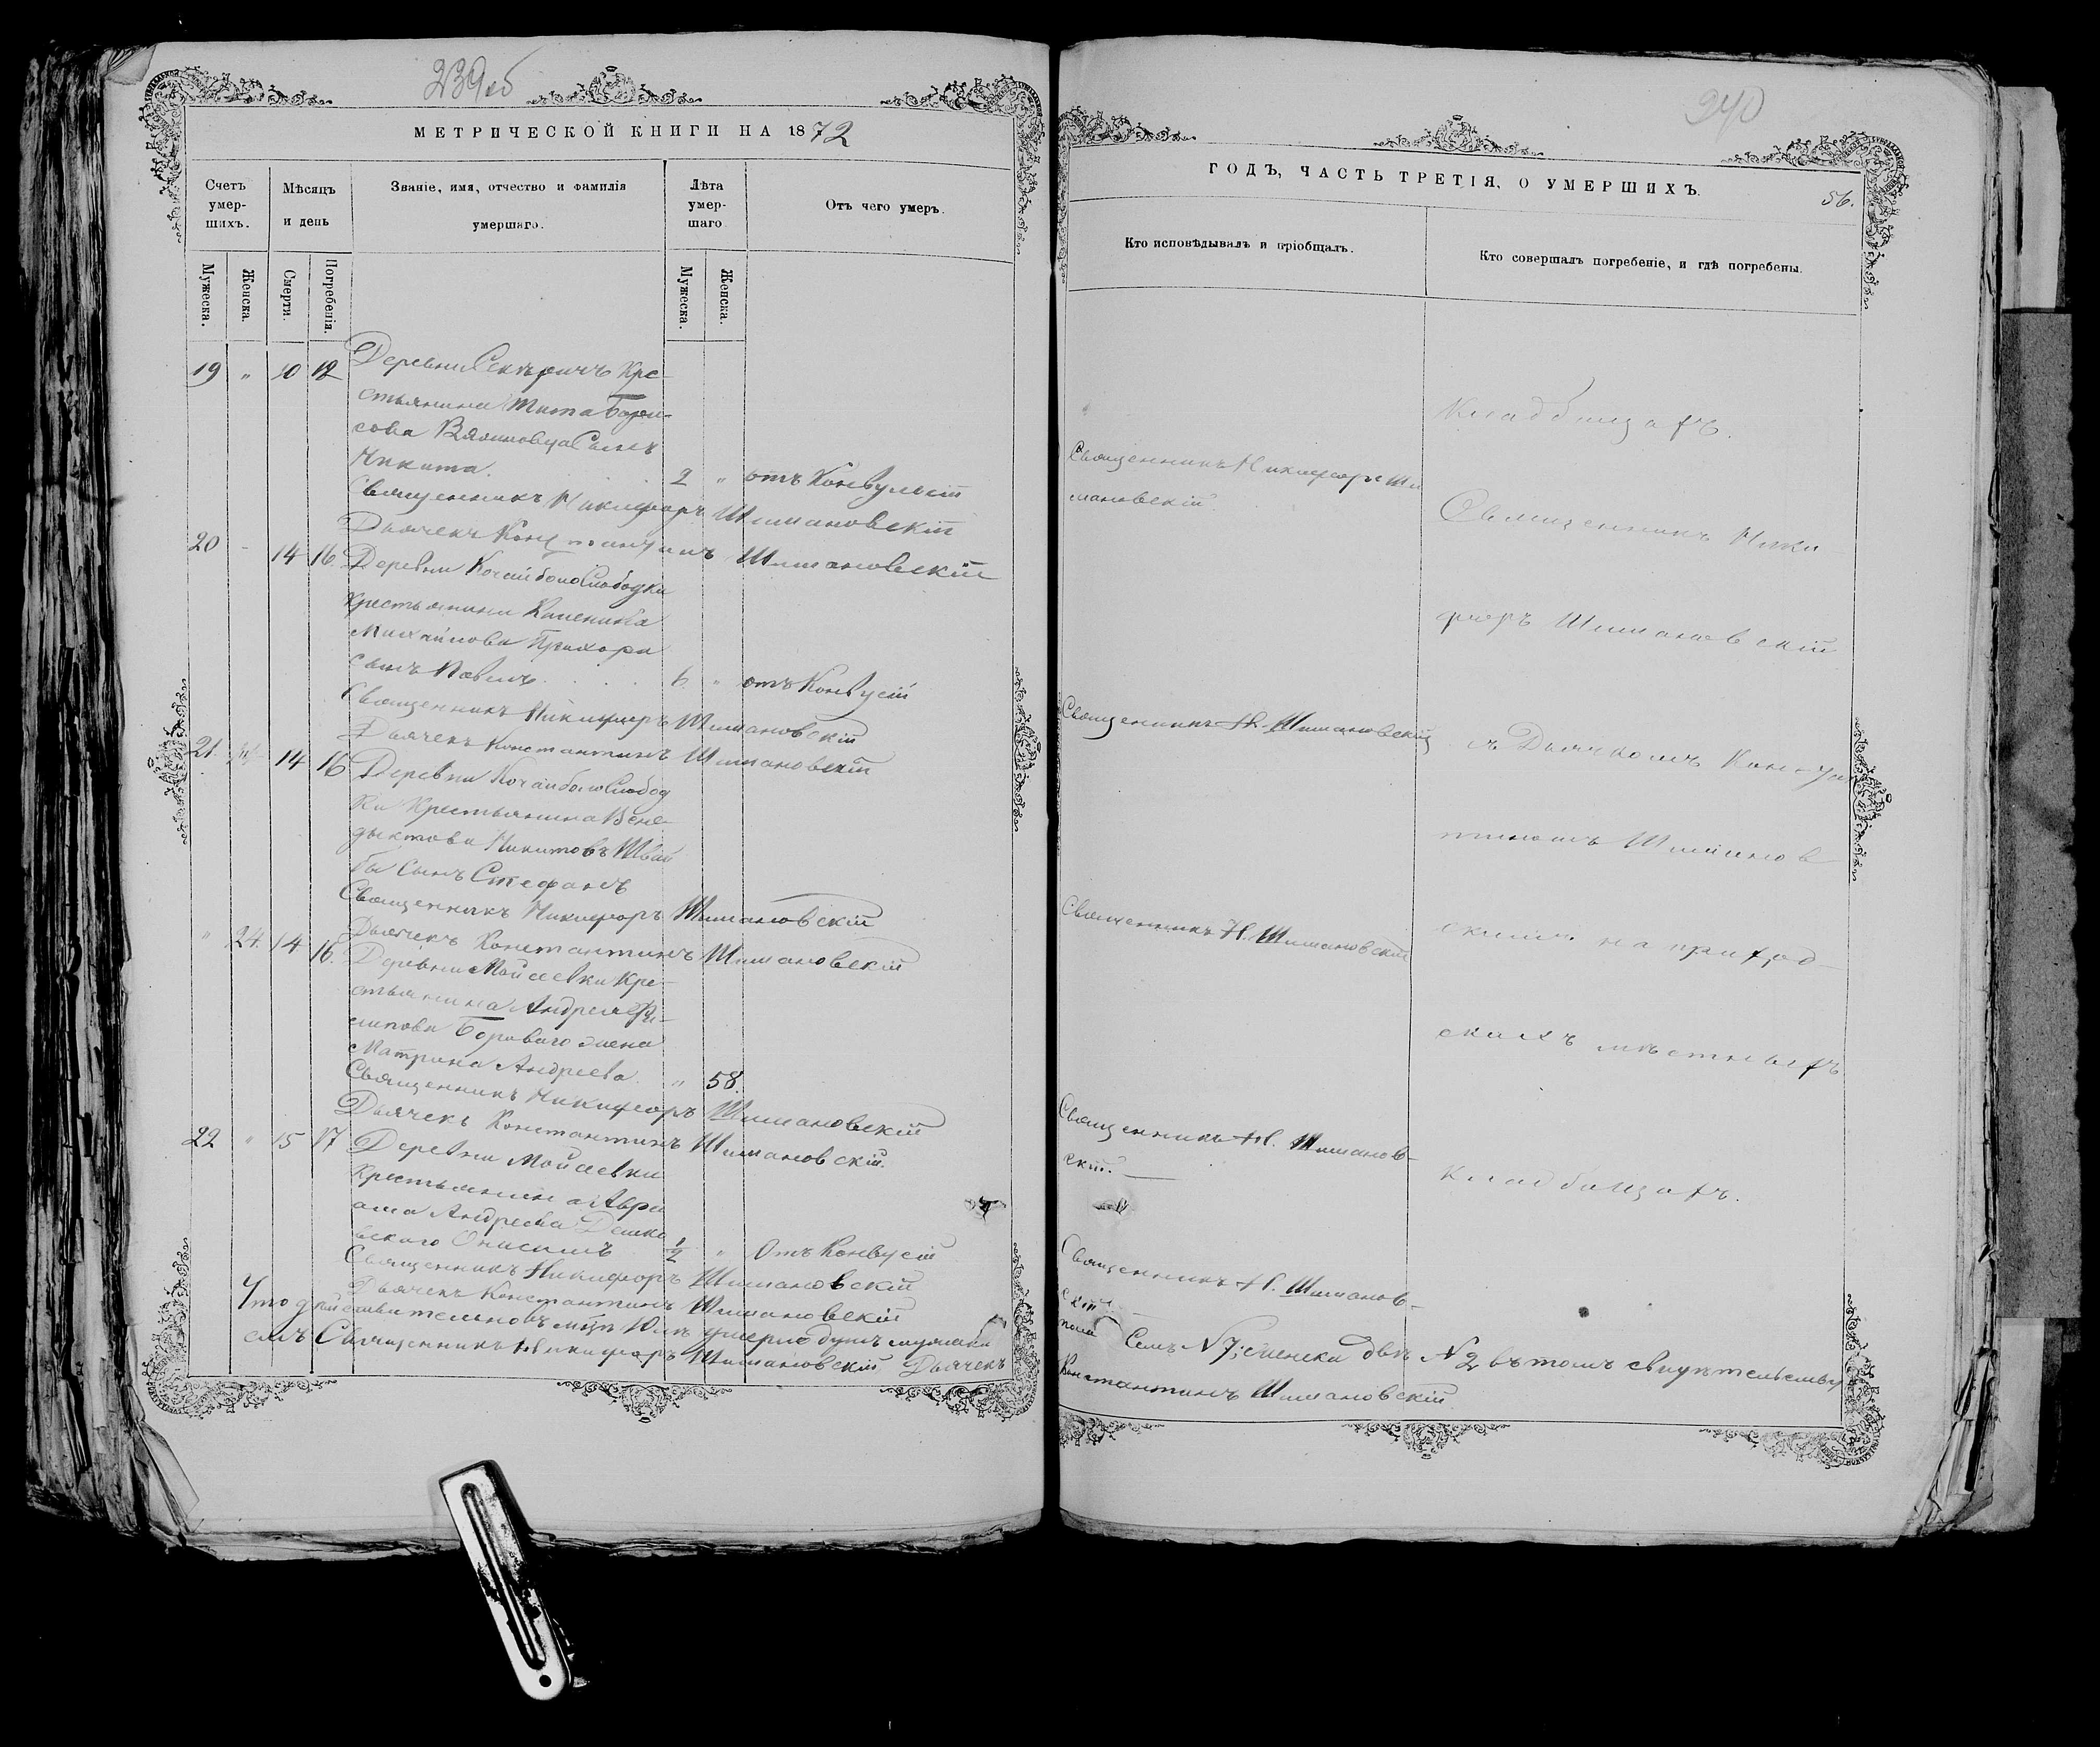 239об
МЕТРИЧЕСКОЙ КНИГИ НА 1872
Счетъ умер-шихъ.
Мѣсяцъ и день
Званіе, имя, отчество и фамилія умершаго.
Лѣта умер-шаго
Отъ чего умеръ.
Мужеска.
Женска.
Смерти.
Погребенія.
Мужеска.
Женска.
19 " 10 12 Деревни Кре-
стьянина Тита Бори-
сова Сынъ
Никита. 2 " отъ Конвульсій
Священникъ Никифоръ Шимановскій
Дьячекъ Константинъ Шимановскій
20 - 14 16. Деревни Слободки
Крестьянина
Михайлова
Сынъ Павелъ 6 " отъ Конвусій
Священникъ Никифоръ Шимановскій
Дьячекъ Константинъ Шимановскій
21. 14 16 Деревни Слобод
ки Крестьянина Вене-
дыктова Никитовъ Шваи
бы Сынъ Стефанъ
Священникъ Никифоръ Шимановскій
Дьячекъ Константинъ Шимановскій
" 24. 14 16. Деревни Мойсеевки Кре-
стьянина Андрея Фи-
липова Бороваго жена
Матрона Андреева. " 58.
Священникъ Никифоръ Шимановскій
Дьячекъ Константинъ Шимановскій
22 " 15 17 Деревни Мойсеевки
Крестьянина Авра
ама Андреева
вскаго Онисимъ 1/2 " Отъ Конвусій
Священникъ Никифоръ Шимановскій
Дьячекъ Константинъ Шимановскій
Что дѣйствительно въ умерло душъ мужеска
Священникъ Никифоръ Шимановскій Дьячекъ
240
ГОДЪ, ЧАСТЬ ТРЕТІЯ, О УМЕРШИХЪ.
56.
Кто исповѣдывалъ и пріобщалъ.
Кто совершалъ погребеніе, и гдѣ погребены.
Кладбищахъ.
Священникъ Никифоръ Ши
мановскій
Священникъ Ники
форъ Шимановскій
Священникъ Н. Шимановскій
съ Дьячкомъ Констан
тиномъ Шиманов
Священникъ Н. Шимановскій
скимъ на приход
скихъ мѣстныхъ
Священникъ Н. Шиманов-
скій.
Кладбищахъ.
Священникъ Н. Шиманов-
скій
пола Семъ N 7; женска двѣ N 2 въ томъ свидѣтельству
Константинъ Шимановскій